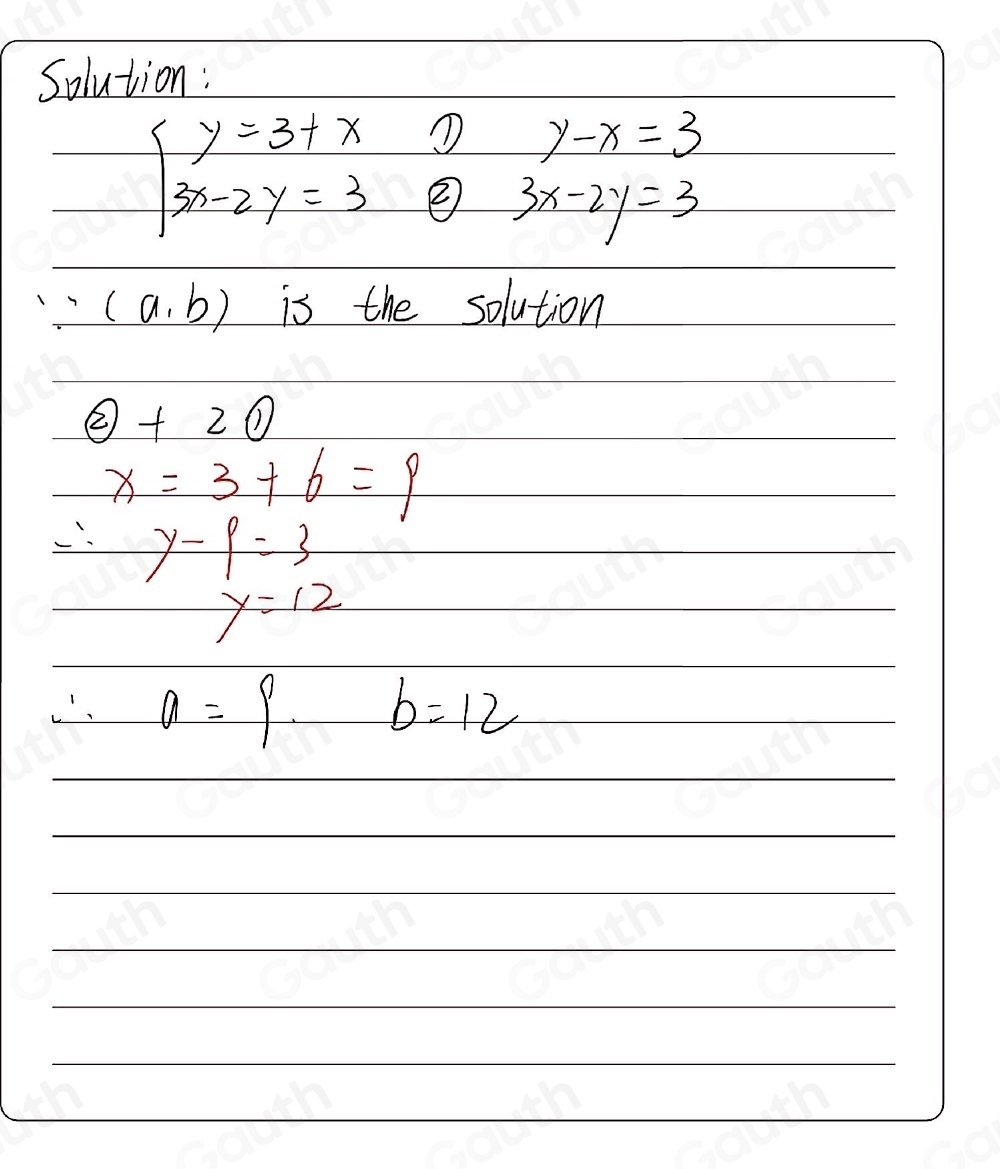 Solution:
{ y = 3 + x ① y - x = 3
3x - 2y = 3 ② 3x - 2y = 3
∵ (a, b) is the solution
② + 2①
x = 3 + 6 = 9
∴ y - 9 = 3
y = 12
∴ a = 9. b = 12